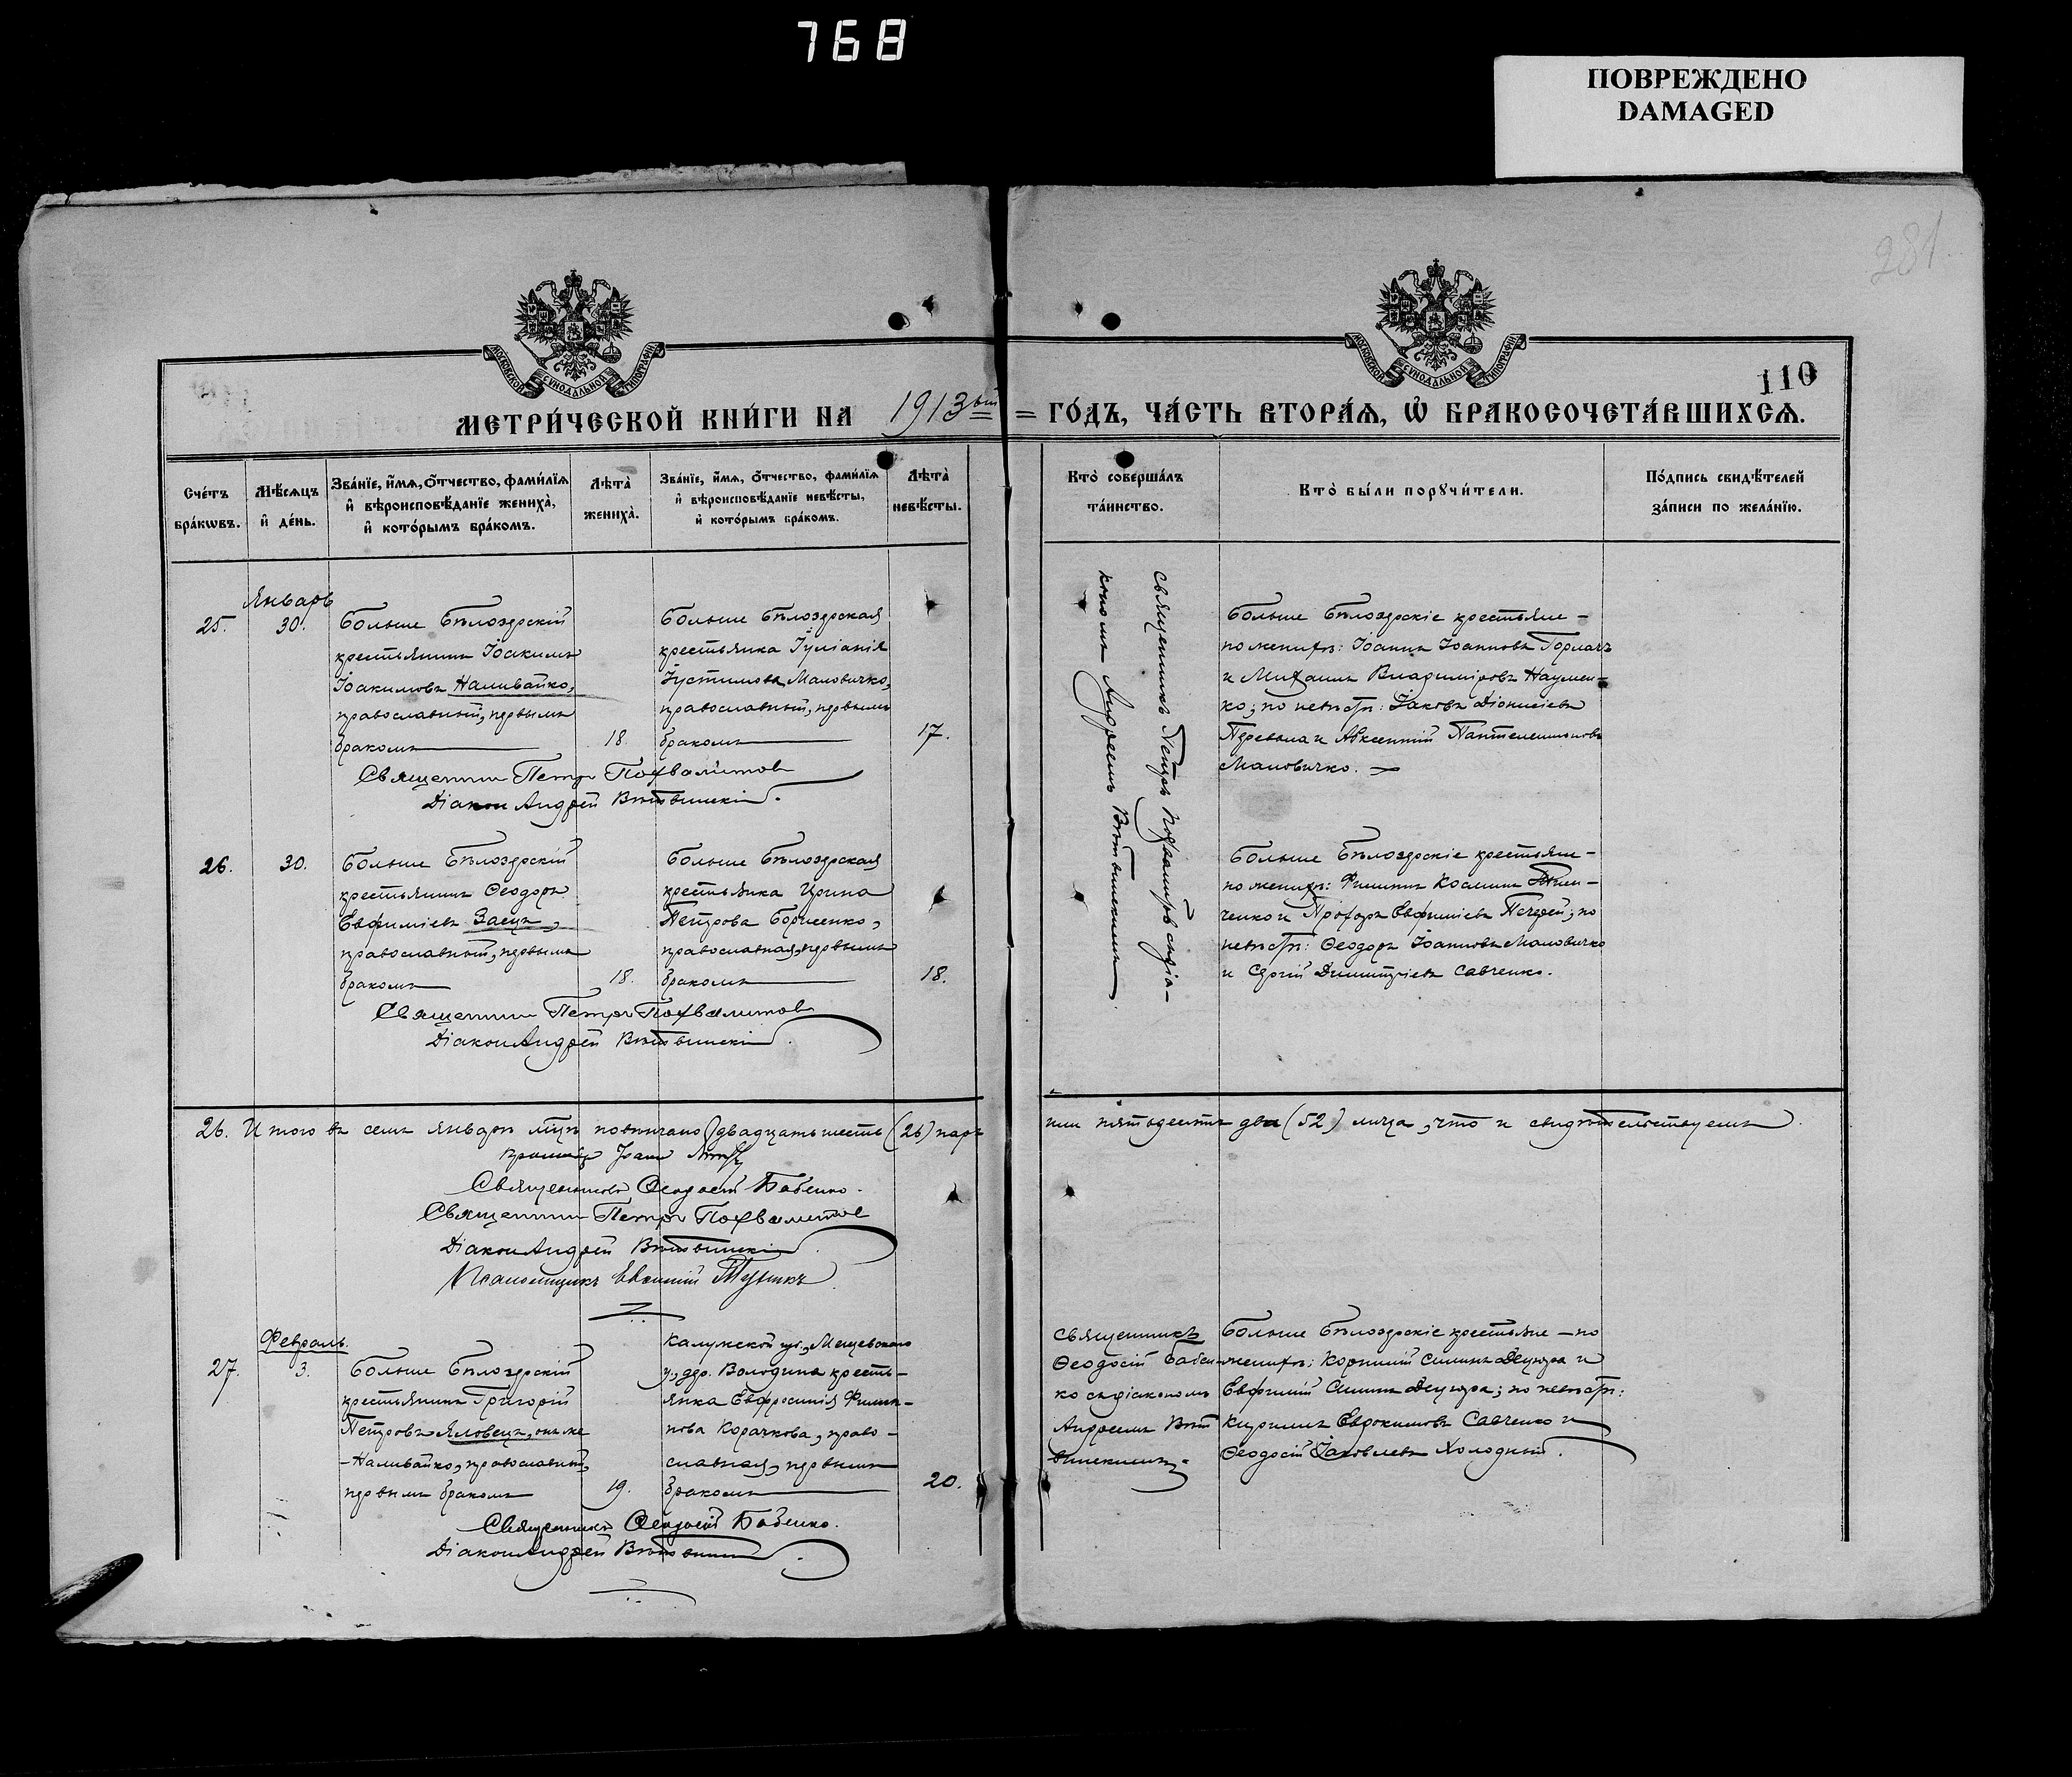 768
ПОВРЕЖДЕНО
DAMAGED
281
110
МОСКОВСКОЙ СУНОДАЛЬНОЙ ТИПОГРАФІИ
МОСКОВСКОЙ СУНОДАЛЬНОЙ ТИПОГРАФІИ
МЕТРИ́ЧЕСКОЙ КНИ́ГИ НА 1913ый = ГО́ДЪ, ЧА́СТЬ ВТОРА́Ѧ, Ѡ҆ БРАКОСОЧЕТА́ВШИХСѦ.
Сче́тъ бра́кѡвъ.
Мѣ́сѧцъ и҆ де́нь.
Зва́нїе, и҆́мѧ, ѻ҆́тчество, фами́лїѧ и҆ вѣроисповѣ́данїе жениха̀, и҆ кото́рымъ бра́комъ.
Лѣта̀ жениха̀.
Зва́нїе, и҆́мѧ, ѻ҆́тчество, фами́лїѧ и҆ вѣроисповѣ́данїе невѣ́сты, и҆ кото́рымъ бра́комъ.
Лѣта̀ невѣ́сты.
Кто̀ соверша́лъ та́инство.
Кто̀ бы́ли порꙋчи́тели.
По́дпись свидѣ́телей за́писи по жела́нїю.
Январь
25.
30.
Больше Бѣлозерскій
крестьянинъ Іоакимъ
Іоакимовъ Наливайко,
православный, первымъ
бракомъ
18
Больше Бѣлозерская
крестьянка Іуліанія
Іустинова Маловичко,
православный, первымъ
бракомъ
17.
Священникъ Петръ Похвалитовъ съ діа-
кономъ Андреемъ Вѣтвинскимъ.
Больше Бѣлозерскіе крестьяне –
по женихѣ: Іоаннъ Іоанновъ Горлачъ
и Михаилъ Владиміровъ Наумен-
ко; по невѣстѣ: Іаковъ Діонисіевъ
и Авксентій Пантелеимоновъ
Маловичко.
Священник Петр Похвалитов
Діакон Андрей Вѣтвинскій.
26.
30.
Больше Бѣлозерскій
крестьянинъ Ѳеодоръ
Евфиміевъ Заецъ,
православный, первымъ
бракомъ
18.
Больше Бѣлозерская
крестьянка Ирина
Петрова Борисенко,
православная, первымъ
бракомъ
18.
Больше Бѣлозерскіе крестьяне –
по женихѣ: Филиппъ Косминъ
и Прохоръ Евфиміевъ; по
невѣстѣ: Ѳеодоръ Іоанновъ Маловичко
и Сергій Димитріевъ Савченко.
Священник Петр Похвалитов
Діакон Андрей Вѣтвинскій.
26. Итого въ семъ январѣ мцѣ повѣнчано двадцать шесть (26) паръ
или пятьдесятъ два (52) лица, что и свидѣтельствуемъ.
Священникъ Ѳеодосій Бабенко.
Священник Петр Похвалитов
Діакон Андрей Вѣтвинскій.
Псаломщикъ Евгеній
Февраль.
27.
3.
Больше Бѣлозерскій
крестьянинъ Григорій
Петровъ Яловецъ, онъ же
– Наливайко, православный,
первымъ бракомъ
19.
Калужской губ., Мещевскаго
у., дер. Володина кресть-
янка Евфросинія Филип-
пова Корачкова, право-
славная, первымъ
бракомъ
20.
Священникъ
Ѳеодосій Бабен-
ко съ діакономъ
Андреемъ Вѣт
винскимъ.
Больше Бѣлозерскіе крестьяне – по
женихѣ: Корнилій Симинъ Децюра и
Евфимій Симинъ Децюра; по невѣстѣ:
Кириллъ Евдокимовъ Савченко и
Ѳеодосій Іаковлевъ Холодный.
Священникъ Ѳеодосій Бабенко.
Діакон Андрей Вѣтвинскій.